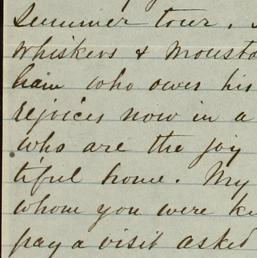 Summer tour.
whiskers & Mousta
who owes his
rejoices now in a
who are the joy
tiful home. My
whom you were k
pay a visit asked